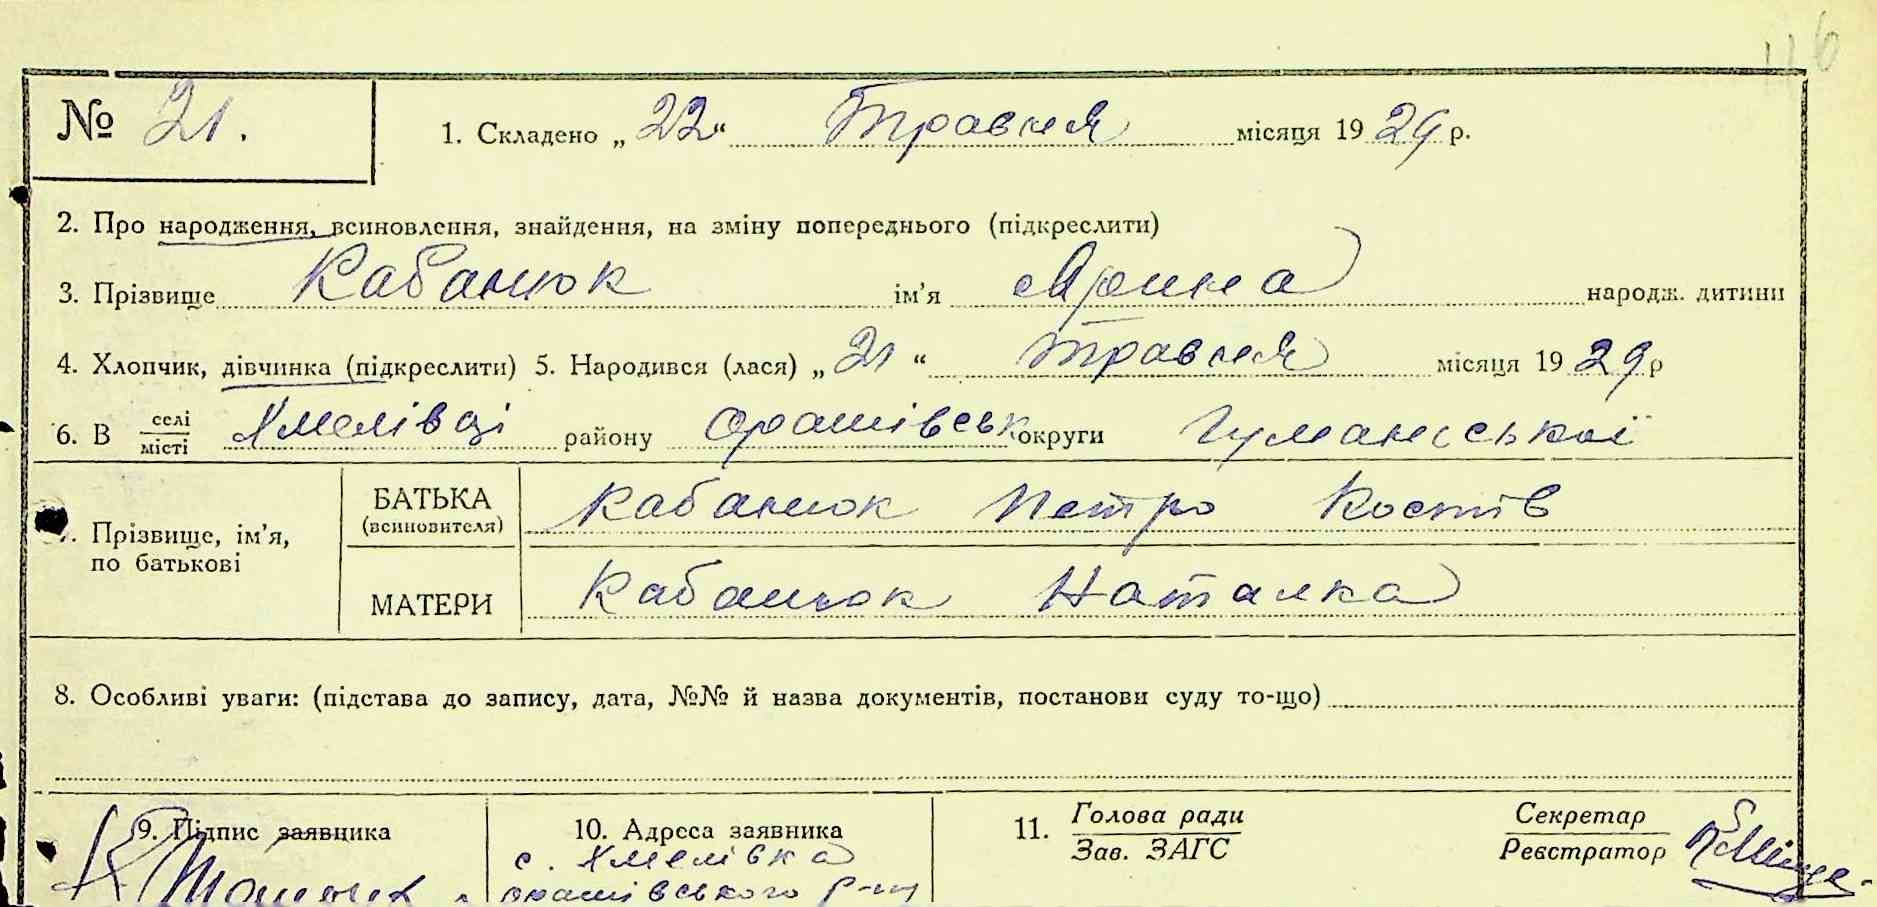 116
№ 21.
1. Складено „22“ Травня місяця 1929 р.
2. Про народження, всиновлення, знайдення, на зміну попереднього (підкреслити)
3. Прізвище Кабанюк ім'я Ярина народж. дитини
4. Хлопчик, дівчинка (підкреслити) 5. Народився (лася) „21“ Травня місяця 1929 р
6. В селі/місті Хмелівці району Оратівськ округи Гуманської
БАТЬКА (всиновителя) Кабанюк Петро Костів
7. Прізвище, ім'я, по батькові
МАТЕРИ Кабанюк Наталка
8. Особливі уваги: (підстава до запису, дата, №№ й назва документів, постанови суду то-що)
9. Підпис заявника 10. Адреса заявника 11. Голова ради Секретар
Зав. ЗАГС Реєстратор
с. Хмелівка
оратівського р-ну